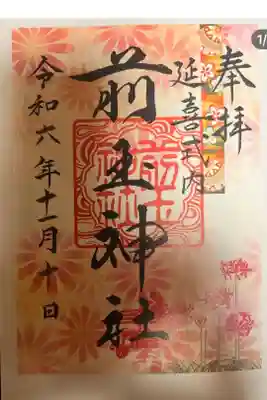 奉拝
延喜式内
前玉神社
令和六年十一月十日
1/